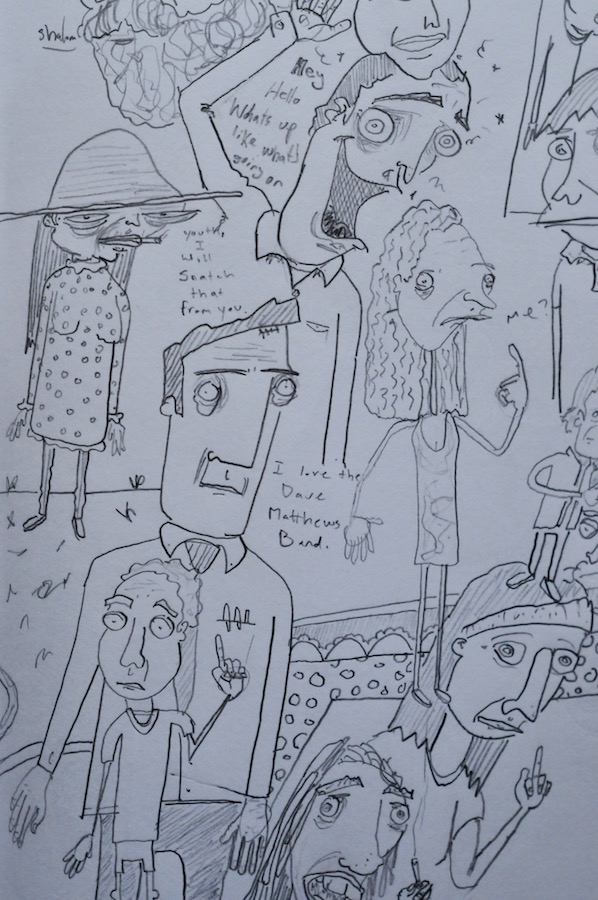 shalom
Hey
Hello
Whats up
like what
going on
youth,
I
Will
Snatch
that
from you.
me?
I love the
Dave
Matthews
Band.